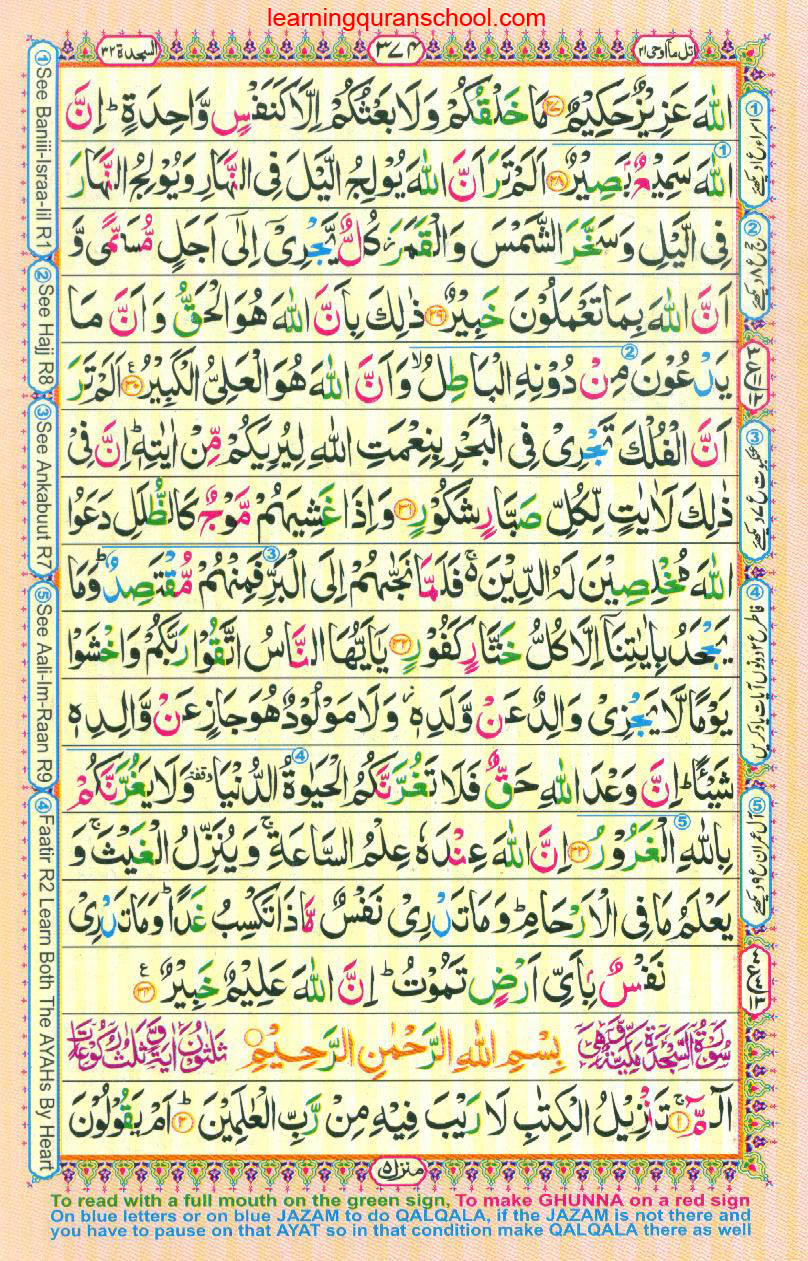 learningquranschool.com
السجدة ٣٢
٣٧٤
اتل ما اوحی ٢١
اللّٰهَ عَزِیْزٌ حَكِیْمٌ ٢٧ مَا خَلْقُكُمْ وَلَا بَعْثُكُمْ اِلَّا كَنَفْسٍ وَّاحِدَةٍ ؕ اِنَّ
اللّٰهَ سَمِیْعٌۢ بَصِیْرٌ ٢٨ اَلَمْ تَرَ اَنَّ اللّٰهَ یُوْلِجُ الَّیْلَ فِی النَّهَارِ وَیُوْلِجُ النَّهَارَ
فِی الَّیْلِ وَسَخَّرَ الشَّمْسَ وَالْقَمَرَ ؗ كُلٌّ یَّجْرِیْۤ اِلٰۤی اَجَلٍ مُّسَمًّی وَّ
اَنَّ اللّٰهَ بِمَا تَعْمَلُوْنَ خَبِیْرٌ ٢٩ ذٰلِكَ بِاَنَّ اللّٰهَ هُوَ الْحَقُّ وَاَنَّ مَا
یَدْعُوْنَ مِنْ دُوْنِهِ الْبَاطِلُ ۙ وَاَنَّ اللّٰهَ هُوَ الْعَلِیُّ الْكَبِیْرُ ٣٠ اَلَمْ تَرَ
اَنَّ الْفُلْكَ تَجْرِیْ فِی الْبَحْرِ بِنِعْمَتِ اللّٰهِ لِیُرِیَكُمْ مِّنْ اٰیٰتِهٖ ؕ اِنَّ فِیْ
ذٰلِكَ لَاٰیٰتٍ لِّكُلِّ صَبَّارٍ شَكُوْرٍ ٣١ وَاِذَا غَشِیَهُمْ مَّوْجٌ كَالظُّلَلِ دَعَوُا
اللّٰهَ مُخْلِصِیْنَ لَهُ الدِّیْنَ ۚ فَلَمَّا نَجّٰىهُمْ اِلَی الْبَرِّ فَمِنْهُمْ مُّقْتَصِدٌ ؕ وَمَا
یَجْحَدُ بِاٰیٰتِنَاۤ اِلَّا كُلُّ خَتَّارٍ كَفُوْرٍ ٣٢ یٰۤاَیُّهَا النَّاسُ اتَّقُوْا رَبَّكُمْ وَاخْشَوْا
یَوْمًا لَّا یَجْزِیْ وَالِدٌ عَنْ وَّلَدِهٖ ؗ وَلَا مَوْلُوْدٌ هُوَ جَازٍ عَنْ وَّالِدِهٖ
شَیْـًٔا ؕ اِنَّ وَعْدَ اللّٰهِ حَقٌّ فَلَا تَغُرَّنَّكُمُ الْحَیٰوةُ الدُّنْیَا وقفة وَلَا یَغُرَّنَّكُمْ
بِاللّٰهِ الْغَرُوْرُ ٣٣ اِنَّ اللّٰهَ عِنْدَهٗ عِلْمُ السَّاعَةِ ۚ وَیُنَزِّلُ الْغَیْثَ ۚ وَ
یَعْلَمُ مَا فِی الْاَرْحَامِ ؕ وَمَا تَدْرِیْ نَفْسٌ مَّاذَا تَكْسِبُ غَدًا ؕ وَمَا تَدْرِیْ
نَفْسٌۢ بِاَیِّ اَرْضٍ تَمُوْتُ ؕ اِنَّ اللّٰهَ عَلِیْمٌ خَبِیْرٌ ٣٤ ع
سُوْرَةُ السَّجْدَةِ مَكِّیَّةٌ وَّهِیَ بِسْمِ اللّٰهِ الرَّحْمٰنِ الرَّحِیْمِ ثَلٰثُوْنَ اٰیَةً وَّثَلٰثُ رُكُوْعَاتٍ
الٓمّٓ ۚ ١ تَنْزِیْلُ الْكِتٰبِ لَا رَیْبَ فِیْهِ مِنْ رَّبِّ الْعٰلَمِیْنَ ٢ اَمْ یَقُوْلُوْنَ
منزل ۵
① See Baniii-Israa-Iil R1
② See Hajj R8
③ See Ankabuut R7
⑤ See Aali-Im-Raan R9
④ Faatir R2 Learn Both The AYAHs By Heart
① اسراء ع ١ دیکھئے
② حج ع ٨ دیکھئے
③ عنکبوت ع ٧ دیکھئے
④ فاطر ع ٢ دونوں آیات یاد کریں
⑤ آل عمران ع ٩ دیکھئے
To read with a full mouth on the green sign, To make GHUNNA on a red sign
On blue letters or on blue JAZAM to do QALQALA, if the JAZAM is not there and
you have to pause on that AYAT so in that condition make QALQALA there as well